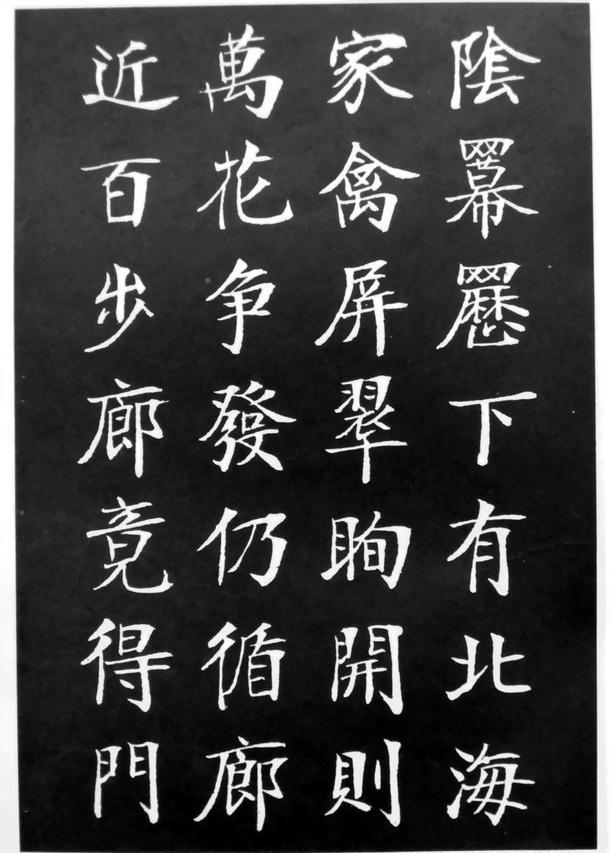 陰羃䍥下有北海
家禽屏翠眴開則
萬花争發仍循廊
近百步廊竟得門